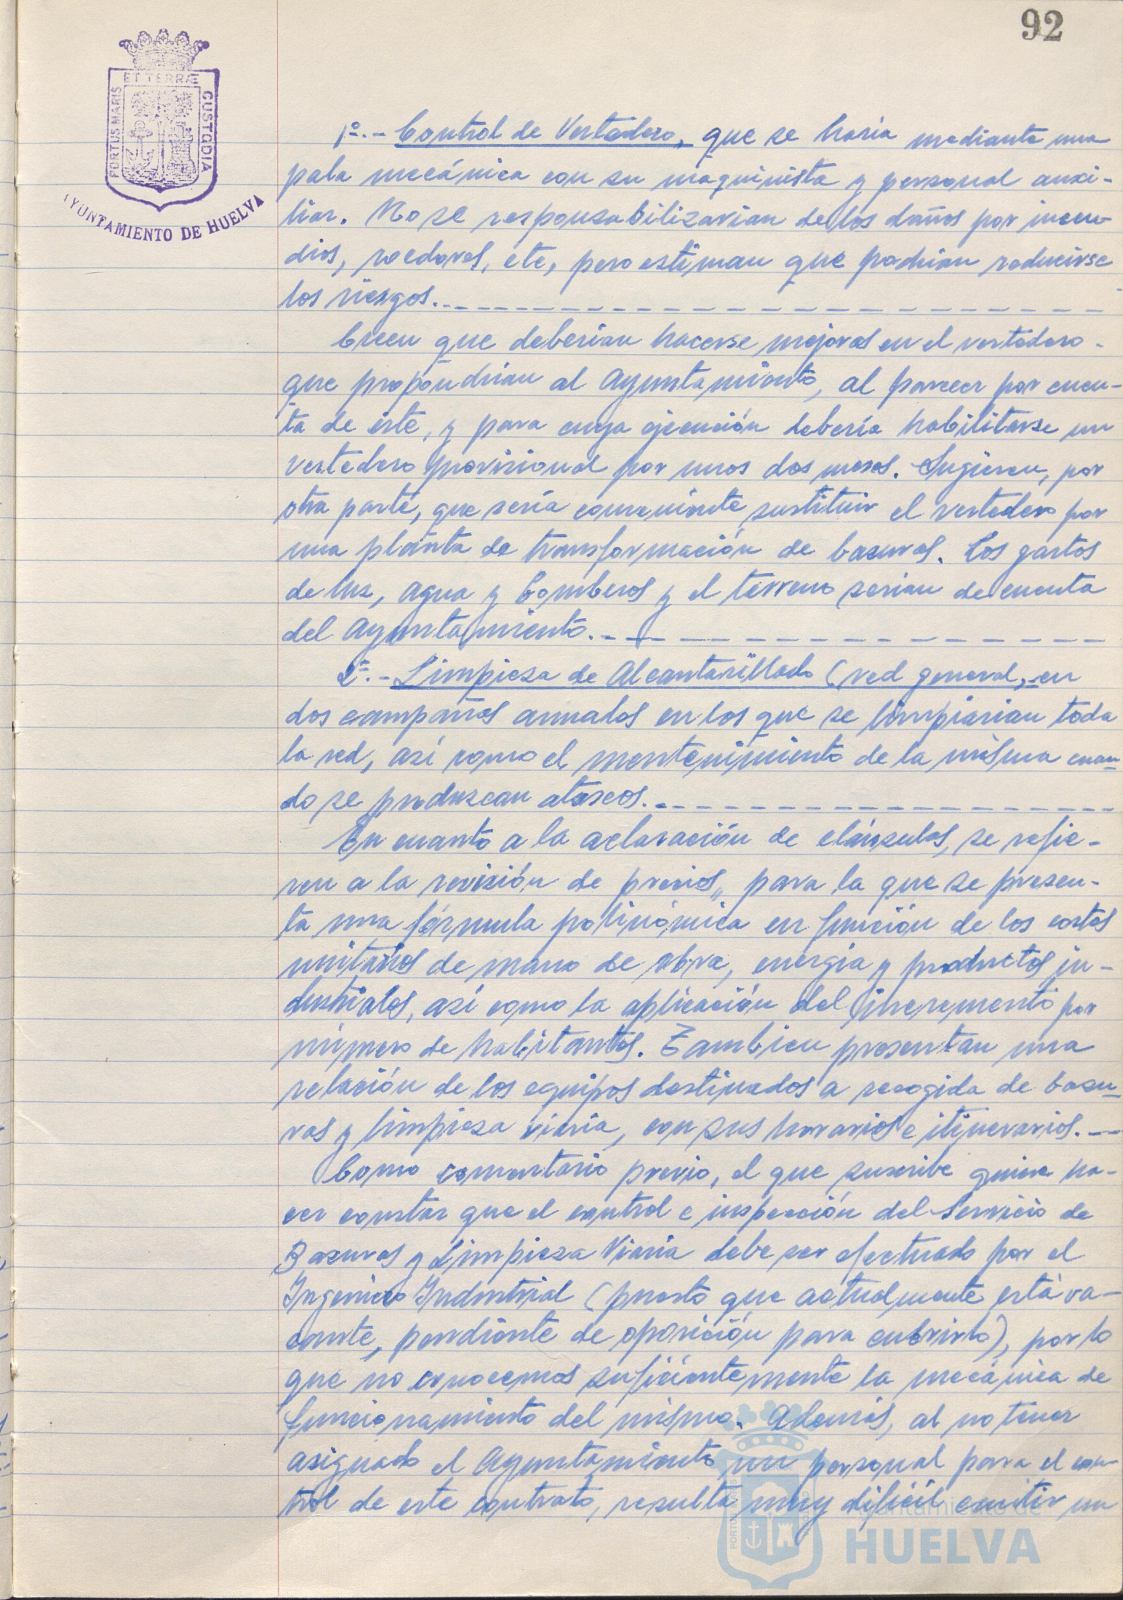 92
PORTUS MARIS
ET TERRÆ
CUSTODIA
AYUNTAMIENTO DE HUELVA
1º.- Control de Vertedero, que se haria mediante una
pala mecánica con su maquinista y personal auxi-
liar. No se responsabilizarian de los daños por incen-
dios, roedores, etc, pero estiman que podrian reducirse
los riesgos.
Creen que deberian hacerse mejoras en el vertedero-
que propondrian al Ayuntamiento, al parecer por cuen-
ta de éste, y para cuya ejecución debería habilitarse un
vertedero provisional por unos dos meses. Sugieren, por
otra parte, que sería conveniente sustituir el vertedero por
una planta de transformación de basuras. Los gastos
de luz, agua y bomberos y el terreno serian de cuenta
del Ayuntamiento.
2º.- Limpieza de Alcantarillado (red general), en
dos campañas anuales en los que se limpiarian toda
la red, así como el mantenimiento de la misma cuan-
do se produzcan atascos.
En cuanto a la aclaración de cláusulas, se refie-
ren a la revisión de precios, para la que se presen-
ta una fórmula polinómica en función de los costos
unitarios de mano de obra, energía y productos in-
dustriales, así como la aplicación del incremento por
número de habitantes. Tambien presentan una
relación de los equipos destinados a recogida de basu-
ras y limpieza viaria, con sus horarios e itinerarios.
Como comentario previo, el que suscribe quiere ha-
cer constar que el control e inspección del Servicio de
Basuras y Limpieza Viaria debe ser efectuado por el
Ingeniero Industrial (puesto que actualmente está va-
cante, pendiente de oposición para cubrirlo), por lo
que no conocemos suficientemente la mecánica de
funcionamiento del mismo. Además, al no tener
asignado el Ayuntamiento un personal para el con-
trol de este contrato, resulta muy dificil emitir un
Ayuntamiento de
HUELVA